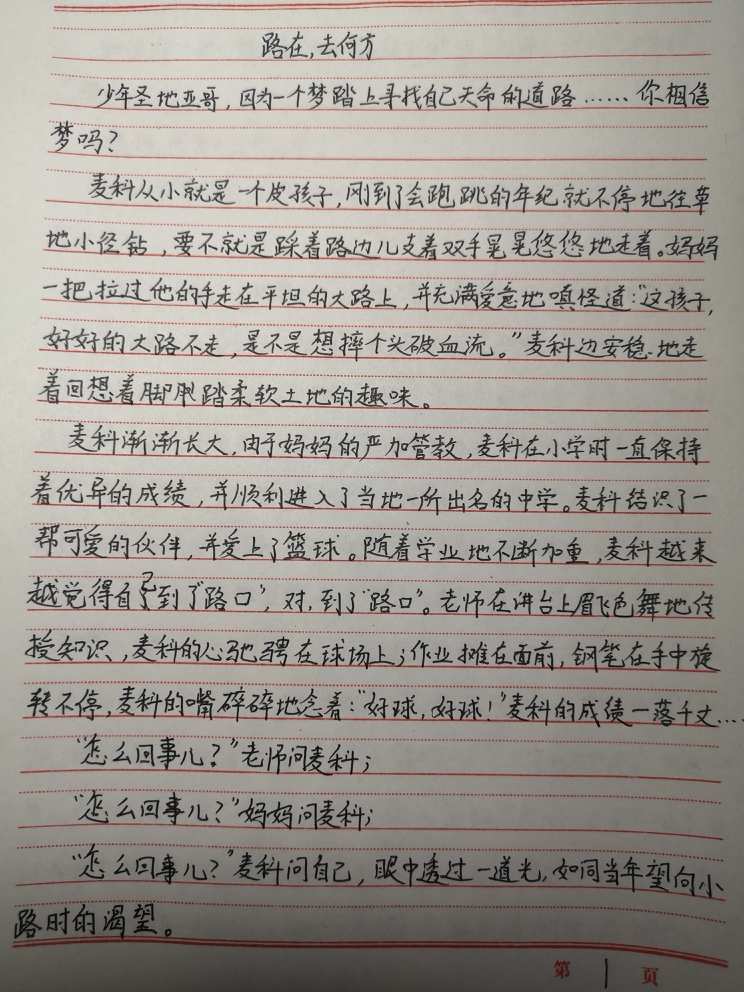 路在,去何方
少年圣地亚哥,因为一个梦踏上寻找自己天命的道路……你相信
梦吗?
麦科从小就是一个皮孩子,刚到了会跑跳的年纪就不停地往草
地小径钻,要不就是踩着路边儿支着双手晃晃悠悠地走着。妈妈
一把拉过他的手走在平坦的大路上,并充满爱意地嗔怪道:“这孩子,
好好的大路不走,是不是想摔个头破血流。”麦科边安稳地走
着回想着脚踏柔软土地的趣味。
麦科渐渐长大,由于妈妈的严加管教,麦科在小学时一直保持
着优异的成绩,并顺利进入了当地一所出名的中学。麦科结识了一
帮可爱的伙伴,并爱上了篮球。随着学业地不断加重,麦科越来
越觉得自己到了“路口”,对,到了“路口”。老师在讲台上眉飞色舞地传
授知识,麦科的心驰骋在球场上;作业摊在面前,钢笔在手中旋
转不停,麦科的嘴碎碎地念着:“好球,好球!”麦科的成绩一落千丈……
“怎么回事儿?”老师问麦科;
“怎么回事儿?”妈妈问麦科;
“怎么回事儿?”麦科问自己,眼中透过一道光,如同当年望向小
路时的渴望。
第 1 页